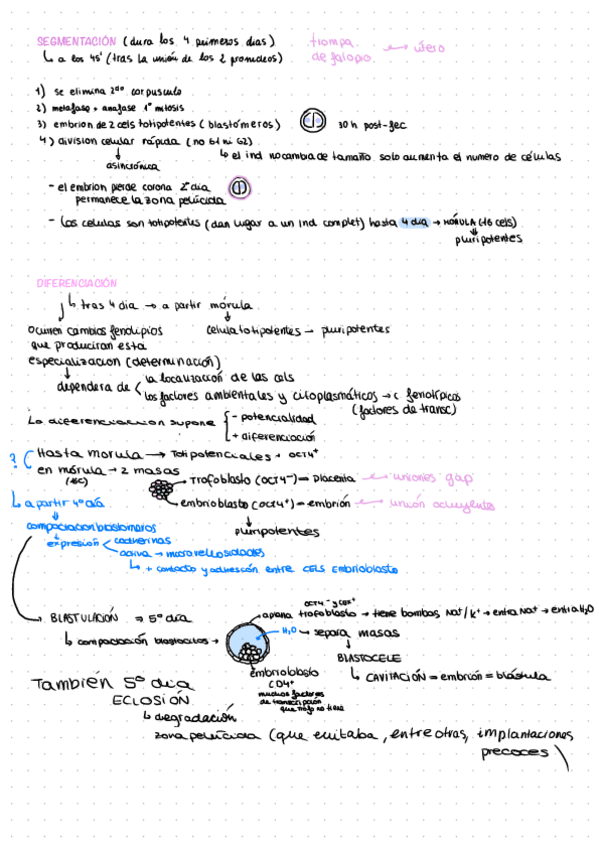 SEGMENTACIÓN (dura los 4 primeros dias)
trompa de falopio. ↔ útero
↳ a los 45' (tras la unión de los 2 pronucleos)
1) se elimina 2do corpusculo
2) metafase + anafase 1ª mitosis
3) embrion de 2 cels totipotentes (blastómeros) 30h post-fec
4) division celular rápida (no G1 ni G2)
↓ asincrónica
↳ el ind no cambia de tamaño solo aumenta el numero de células
- el embrion pierde corona 2º dia
permanece la zona pelúcida
- Las celulas son totipotentes (dan lugar a un ind complet) hasta 4 dia → MÓRULA (16 cels)
↓ pluripotentes
DIFERENCIACIÓN
↳ tras 4 dia → a partir mórula
ocurren cambios
que produciran esta
especialización (determinación)
celula totipotentes → pluripotentes
dependera de
la localización de las cels
los factores ambientales y citoplasmáticos → c. fenotípicos
(factores de transc)
La diferenciacion supone
- potencialidad
+ diferenciación
? Hasta morula → Totipotenciales + OCT4+
en mórula → 2 masas
trofoblasto (OCT4-) = placenta ← uniones gap
embrioblasto (OCT4+) = embrión ← unión ocluyentes
↓ pluripotentes
↳ a partir 4º dia
↓
compactacion blastomeros
↳ expresión
cadherinas
activa → microvellosidades
↳ + contacto y adhesión entre CELS Embrioblasto
BLASTULACIÓN ⇒ 5º dia
↳ compactación
OCT4- y
trofoblasto → tiene bombas Na+/K+ → entra Na+ → entra H2O
H2O → separa masas
↓ BLASTOCELE
↳ CAVITACIÓN = embrión = blástula
embrioblasto
muchos factores
de transcripción
que trofo no tiene
También 5º dia
ECLOSIÓN
↳ degradación
zona pelúcida (que evitaba, entre otras, implantaciones
precoces)